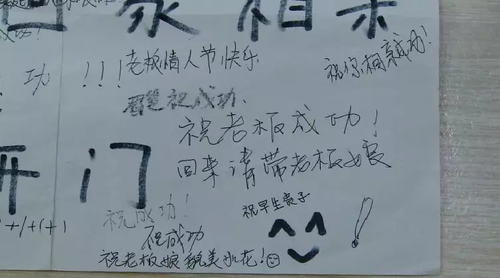 回家相亲
成功!
功!!!
老板情人节快乐
祝你相亲成功!
祝成功.
祝老板成功!
开门
回来请带老板娘
祝早生贵子
祝成功!
祝成功
祝老板娘貌美如花!